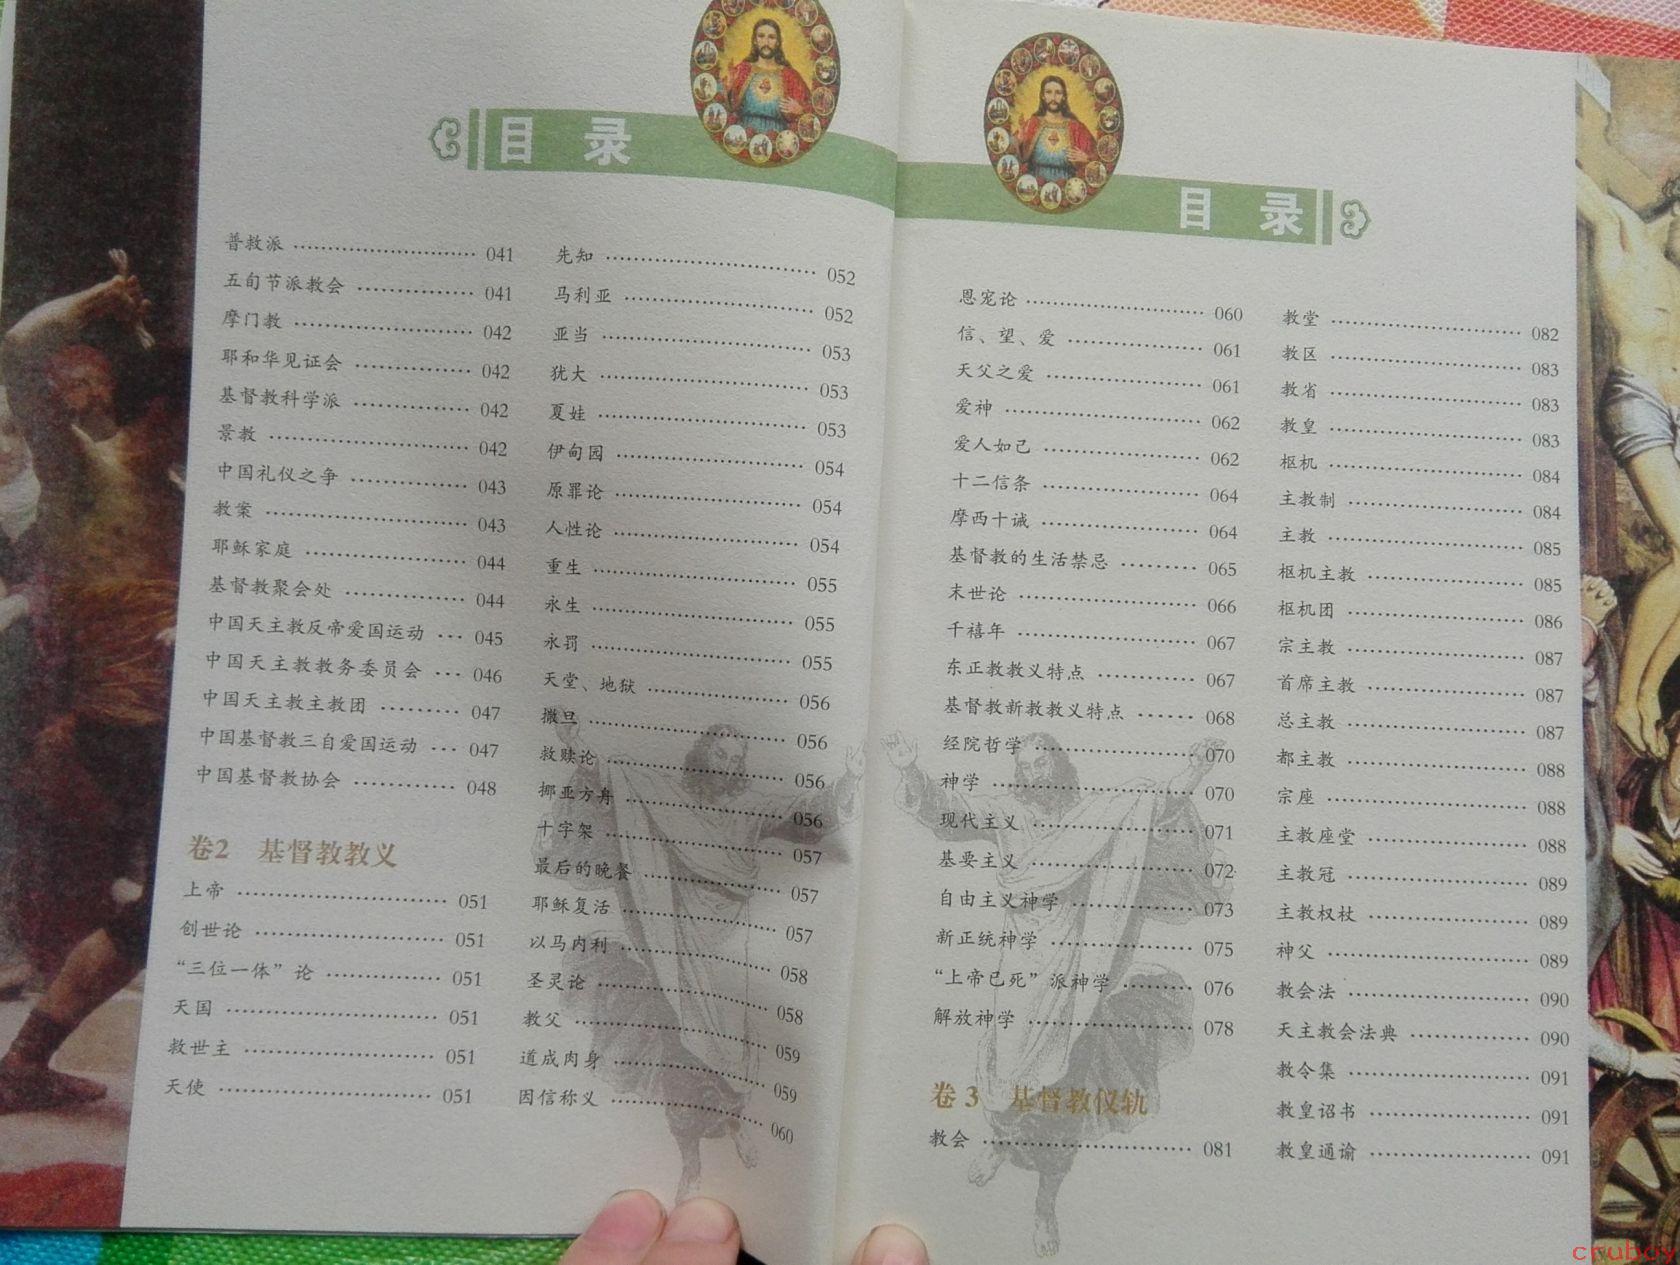 目 录
普救派 …… 041
五旬节派教会 …… 041
摩门教 …… 042
耶和华见证会 …… 042
基督教科学派 …… 042
景教 …… 042
中国礼仪之争 …… 043
教案 …… 043
耶稣家庭 …… 044
基督教聚会处 …… 044
中国天主教反帝爱国运动 … 045
中国天主教教务委员会 … 046
中国天主教主教团 …… 047
中国基督教三自爱国运动 … 047
中国基督教协会 …… 048
卷2 基督教教义
上帝 …… 051
创世论 …… 051
“三位一体”论 …… 051
天国 …… 051
救世主 …… 051
天使 …… 051
先知 …… 052
马利亚 …… 052
亚当 …… 053
犹大 …… 053
夏娃 …… 053
伊甸园 …… 054
原罪论 …… 054
人性论 …… 054
重生 …… 055
永生 …… 055
永罚 …… 055
天堂、地狱 …… 056
撒旦 …… 056
救赎论 …… 056
挪亚方舟 …… 056
十字架 …… 057
最后的晚餐 …… 057
耶稣复活 …… 057
以马内利 …… 058
圣灵论 …… 058
教父 …… 059
道成肉身 …… 059
因信称义 …… 060
目 录
恩宠论 …… 060
信、望、爱 …… 061
天父之爱 …… 061
爱神 …… 062
爱人如己 …… 062
十二信条 …… 064
摩西十诫 …… 064
基督教的生活禁忌 …… 065
末世论 …… 066
千禧年 …… 067
东正教教义特点 …… 067
基督教新教教义特点 …… 068
经院哲学 …… 070
神学 …… 070
现代主义 …… 071
基要主义 …… 072
自由主义神学 …… 073
新正统神学 …… 075
“上帝已死”派神学 …… 076
解放神学 …… 078
卷 3 基督教仪轨
教会 …… 081
教堂 …… 082
教区 …… 083
教省 …… 083
教皇 …… 083
枢机 …… 084
主教制 …… 084
主教 …… 085
枢机主教 …… 085
枢机团 …… 086
宗主教 …… 087
首席主教 …… 087
总主教 …… 087
都主教 …… 088
宗座 …… 088
主教座堂 …… 088
主教冠 …… 089
主教权杖 …… 089
神父 …… 089
教会法 …… 090
天主教会法典 …… 090
教令集 …… 091
教皇诏书 …… 091
教皇通谕 …… 091
cruboy